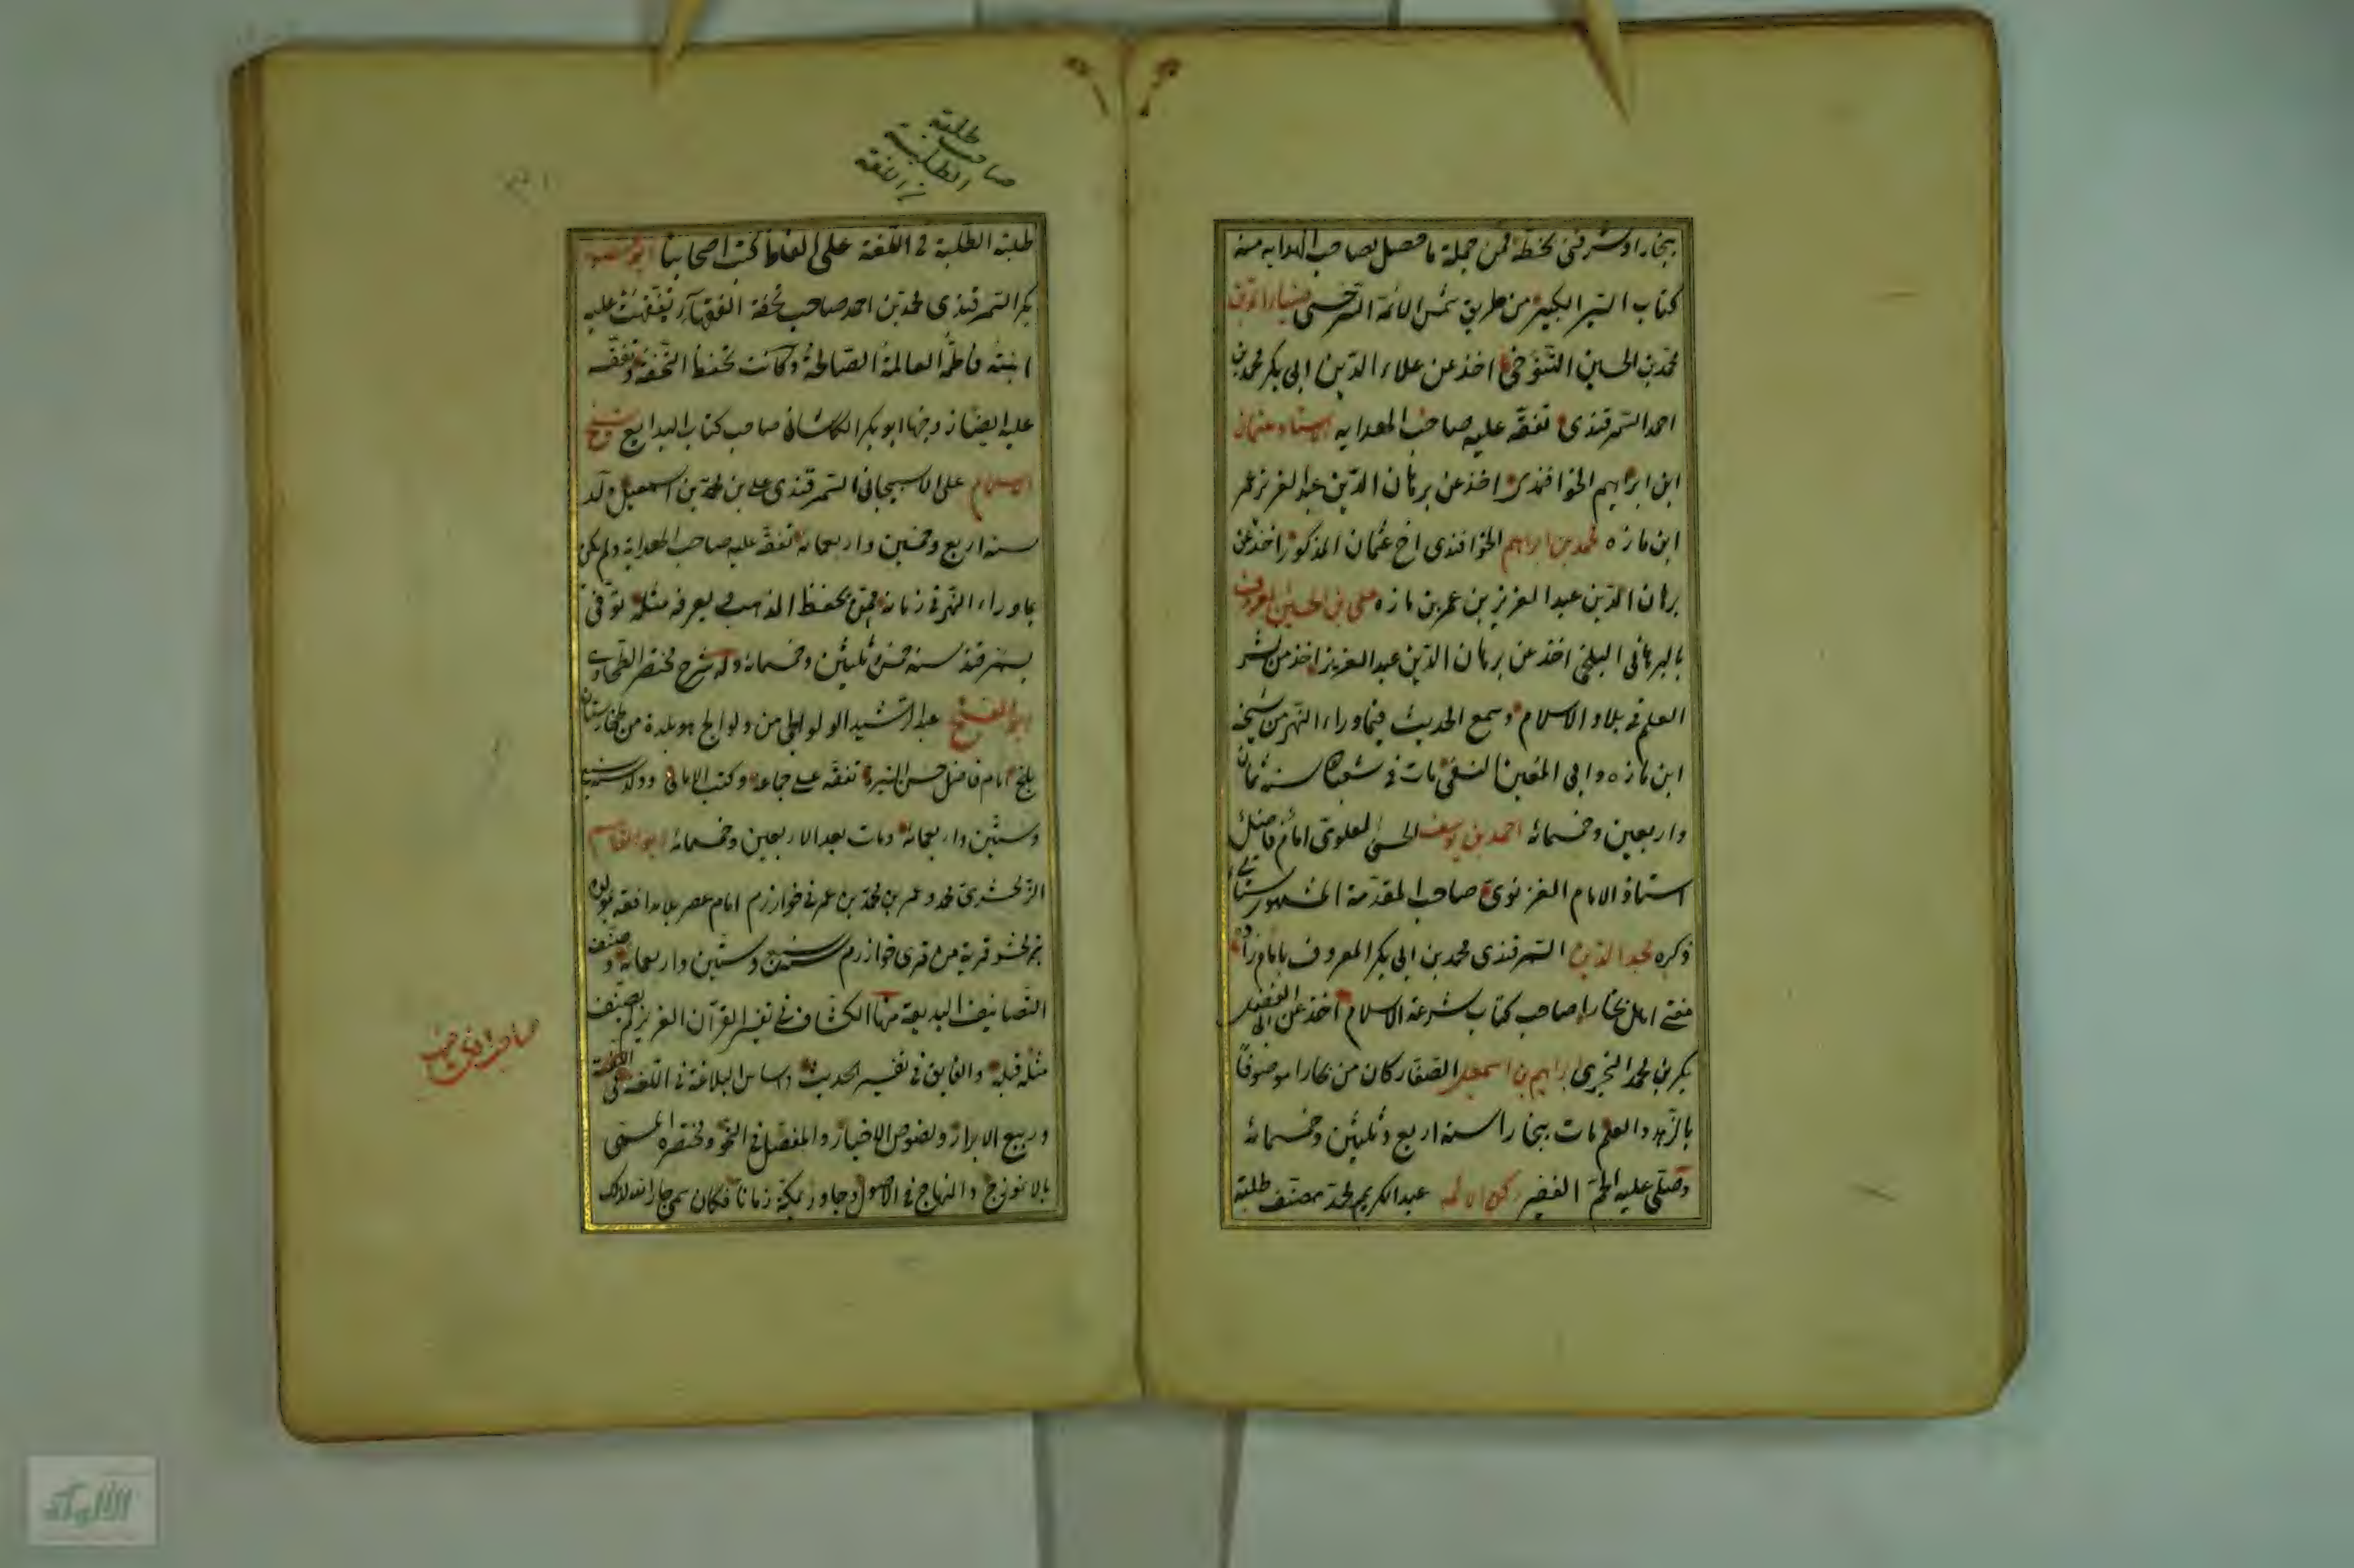 ببخارا وشرفنى بخطه فمن جملة ما حصل لصاحب الهداية منه
كتاب السير الكبير من طريق شمس الائمة السرخسى ضياء الدين
محمد بن الحسين التنوخى اخذ عن علاء الدين ابى بكر محمد بن
احمد السمرقندى تفقه عليه صاحب الهداية الاستاد عثمان
ابن ابراهيم الخواقندى اخذ عن برهان الدين عبد العزيز عمر
ابن مازه محمد بن ابراهيم الخواقندى اخ عثمان المذكور اخذ عن
برهان الدين عبد العزيز بن عمر بن مازه على بن الحسين المعروف
بالبرهانى البلخى اخذ عن برهان الدين عبد العزيز اخذ من نشر
العلم فى بلاد الاسلام وسمع الحديث فيما وراء النهر من شيخه
ابن مازه وابى المعين النسفى مات فى شعبان سنة ثمان
واربعين وخمسمائة احمد بن يوسف الحسنى العلوى امام فاضل
استاذ الامام الغزنوى صاحب المقدمة المشهور ستاتى
ذكره مجد الدين السمرقندى محمد بن ابى بكر المعروف بامام زاده
مفتى اهل بخارا صاحب كتاب شرعة الاسلام اخذ عن ابى الفضل
بكر بن محمد الزرنجرى ابراهيم بن اسمعيل الصفار كان من بخارا موصوفا
بالزهد والعلم مات ببخارا سنة اربع وثلثين وخمسمائة
وصلى عليه الجم الغفير ركن الائمه عبد الكريم محمد مصنف طلبة
صاحب طلبة
الطلبة
فى اللغة
طلبة الطلبة فى اللغة على الفاظ كتب اصحابنا ابو منصور
بكر السمرقندى محمد بن احمد صاحب تحفة الفقهاء تفقهت عليه
ابنته فاطمة العالمة الصالحة وكانت تحفظ التحفة وتفقه
عليه ايضا زوجها ابو بكر الكاشانى صاحب كتاب البدايع شيخ
الاسلام على الاسبيجابى السمرقندى على بن محمد بن اسمعيل ولد
سنة اربع وخمسين واربعمائة تفقه عليه صاحب الهداية ولم يكن
بماوراء النهر فى زمانه من يحفظ المذهب ويعرفه مثله توفى
بسمرقند سنة خمس وثلثين وخمسمائة وله شرح مختصر الطحاوى
ابو الفتح عبد الرشيد الولوالجى من ولوالج هو بلدة من طخارستان
بلخ امام فاضل حسن السيرة تفقه على جماعة وكتب الامالى وولد سنة سبع
وستين واربعمائة ومات بعد الاربعين وخمسمائة ابو القاسم
الزمخشرى محمود عمر بن محمد بن عمر فى خوارزم امام عصر بلا مدافعة مولده
بزمخشر قرية من قرى خوارزم سنة سبع وستين واربعمائة وصنف
التصانيف البديعة منها الكشاف فى تفسير القرآن العزيز لم يصنف
مثله قبله والفايق فى تفسير الحديث واساس البلاغة فى اللغة
وربيع الابرار ونصوص الاخبار والمفصل فى النحو ومختصره المسمى
بالانموذج والمنهاج فى الاصول وجاور بمكة زمانا فكان سمى جار الله لذلك
صاحب الكشاف